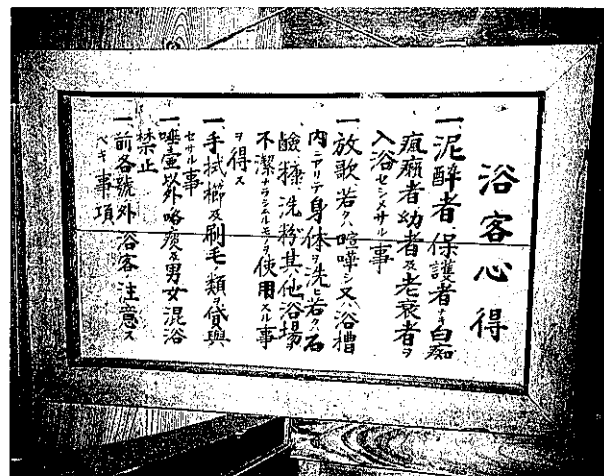 浴客心得
一泥酔者保護者ナキ白痴
瘋癲者幼者及老衰者ヲ
入浴セシメサル事
一放歌若クハ喧嘩シ又ハ浴槽
内ニアリテ身体ヲ洗ヒ若クハ石
鹸糠洗粉其他浴場ヲ
不潔ナラシムルモノヲ使用スル事
ヲ得ス
一手拭櫛及刷毛類ヲ貸與
セサル事
一唾壷以外咯痰及男女混浴
禁止
一前各號外浴客注意ス
ベキ事項